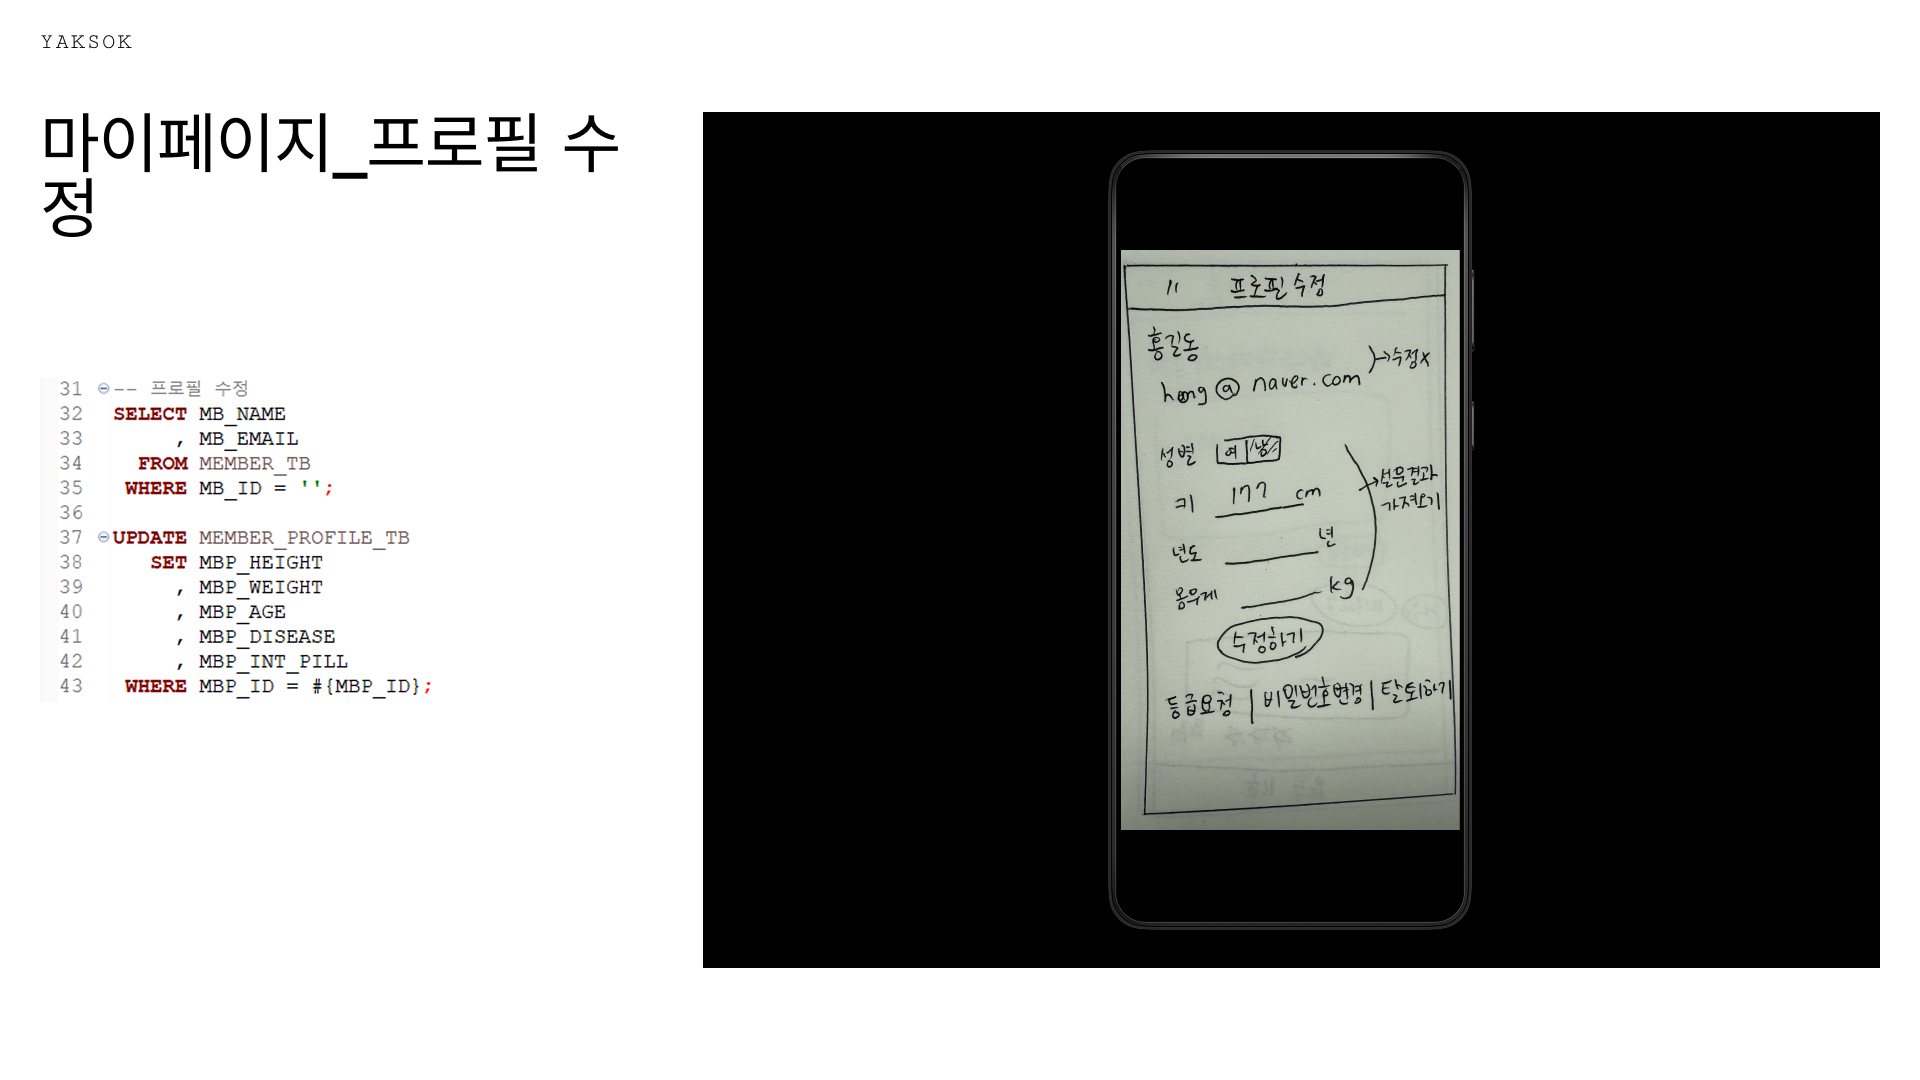 YAKSOK
마이페이지_프로필 수
정
31 -- 프로필 수정
32 SELECT MB_NAME
33 , MB_EMAIL
34 FROM MEMBER_TB
35 WHERE MB_ID = '';
36
37 UPDATE MEMBER_PROFILE_TB
38 SET MBP_HEIGHT
39 , MBP_WEIGHT
40 , MBP_AGE
41 , MBP_DISEASE
42 , MBP_INT_PILL
43 WHERE MBP_ID = #{MBP_ID};
프로필 수정
홍길동
hong@naver.com
→수정x
성별 여 남
키 177 cm
→설문결과
가져오기
년도 년
몸무게 kg
수정하기
등급요청 | 비밀번호변경 | 탈퇴하기